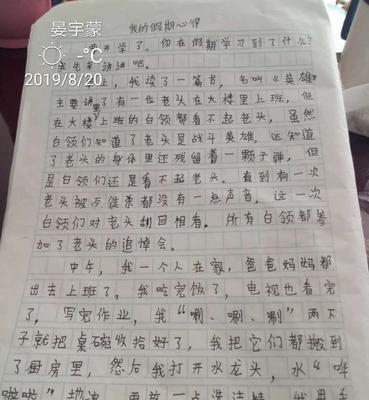 晏宇蒙
30℃
2019/8/20
我的假期心得
要开学了，你在假期学习到了什么？
我先来讲讲吧。
上，我读了一篇书，名叫《英雄
主要讲了有一位老头在大楼里上班，但
在大楼里上班的白领都看不起老头，虽然
白领们知道了老头是战斗英雄，还知道
了老头的身体里还残留着一颗子弹，但
是白领们还是看不起老头，直到有一次
老头被歹徒杀都没有一点声音，这一次
白领们对老头刮目相看。所有白领都参
加了老头的追悼会。
中午，我一个人在家，爸爸妈妈都
出去上班了，我吃完饭了，电视也看完
了，写完作业，我“唰、唰、唰”两下
子就把桌碗收拾好了，我把它们都搬到
了厨房里，然后我打开水龙头，水“哗
啦啦”
再放一点洗洁精，我用手